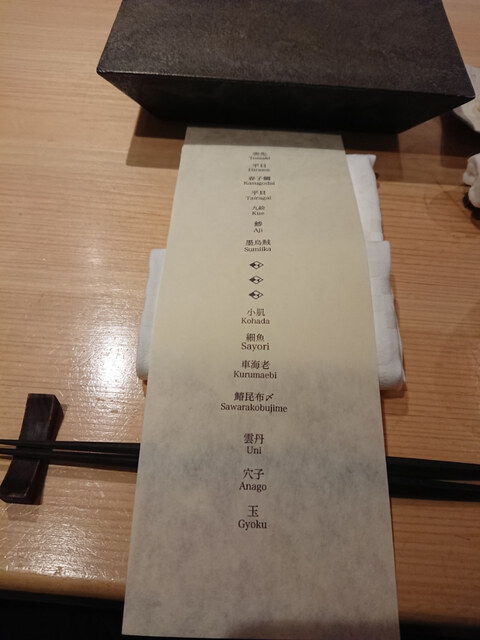 突先
Tossaki
平目
Hirame
春子鯛
Kasugodai
平貝
Tairagai
九絵
Kue
鯵
Aji
墨烏賊
Sumiika
小肌
Kohada
細魚
Sayori
車海老
Kurumaebi
鰆昆布〆
Sawarakobujime
雲丹
Uni
穴子
Anago
玉
Gyoku